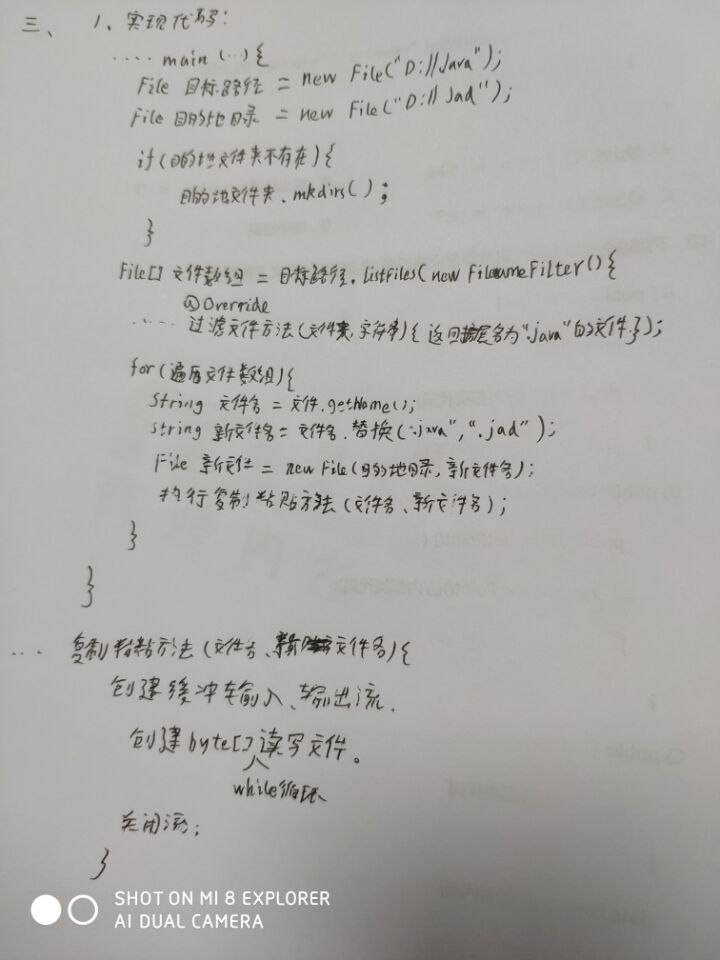 三、 1、实现代码：
.... main (...) {
File 目标路径 = new File("D://Java");
File 目的地目录 = new File("D:// Jad");
if(目的地文件夹不存在){
目的地文件夹.mkdirs();
}
File[] 文件数组 = 目标路径.listFiles(new FilenameFilter(){
@Override
..... 过滤文件方法(文件夹,字符串){返回扩展名为".java"的文件}});
for(遍历文件数组){
String 文件名 = 文件.getName();
String 新文件名 = 文件名.替换(".java",".jad");
File 新文件 = new File(目的地目录,新文件名);
执行复制粘贴方法(文件名、新文件名);
}
}
... 复制粘贴方法(文件名、新文件名){
创建缓冲输入、输出流.
创建byte[]读写文件。
while循环
关闭流;
}
SHOT ON MI 8 EXPLORER
AI DUAL CAMERA